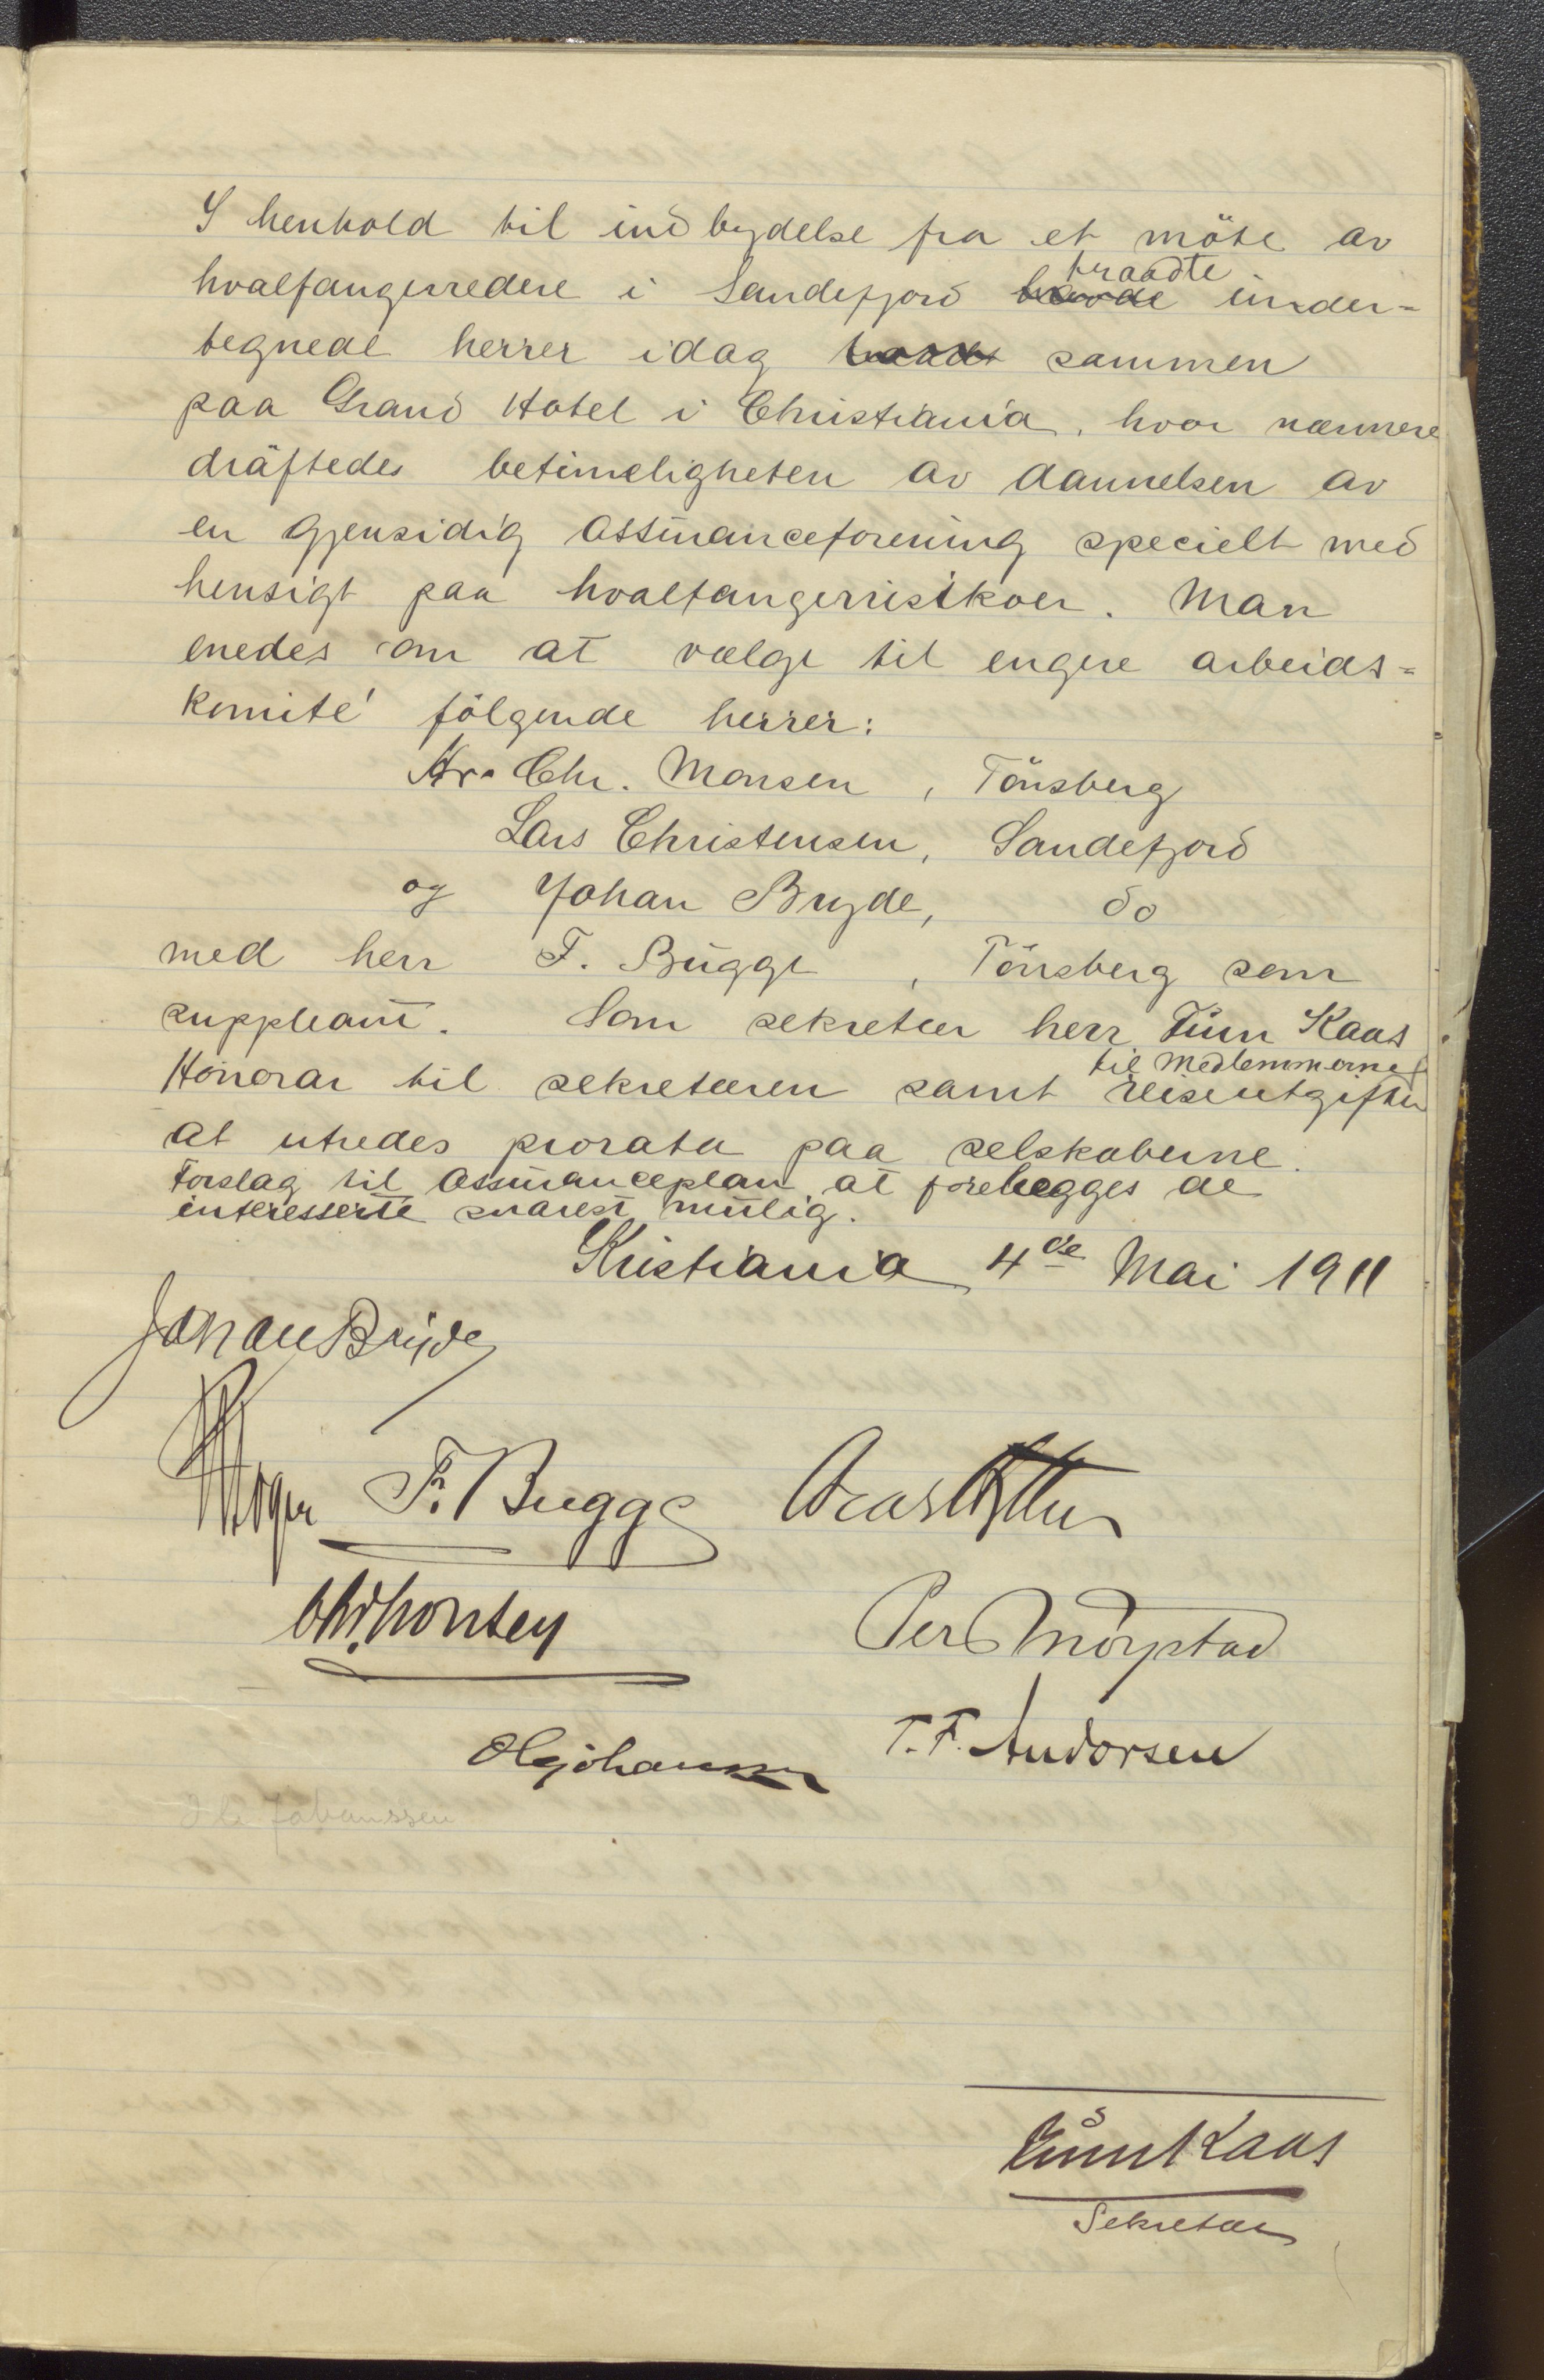 I henhold til indbydelse fra et möte av
hvalfangerredere i Sandefjord traadte under=
tegnede herrer idag sammen
paa Grand Hotel i Christiania, hvor nærmere
dräftedes betimeligheten av dannelsen av
en gjensidig assuranceforening specielt med
hensigt paa hvalfangerrisikoer. Man
enedes om at vælge til engere arbeids=
komité fölgende herrer:
Hr. Chr. Monsen, Tönsberg
Lars Christensen, Sandefjord
og Johan Bryde, do
med herr F. Bugge, Tönsberg som
suppleant. Som sekretær herr Finn Kaas
Honorar til sekretæren samt til medlemmernes reiseutgifter
at utredes prorata paa selskaberne.
Forslag til assuranceplan at forelægges de
interesserte snarest mulig.
Kristiania 4de Mai 1911
Johan Bryde
F. Bugge
Chr. Monsen
Per
T.F. Andorsen
Ole Johanssen
Kaas
Sekretær